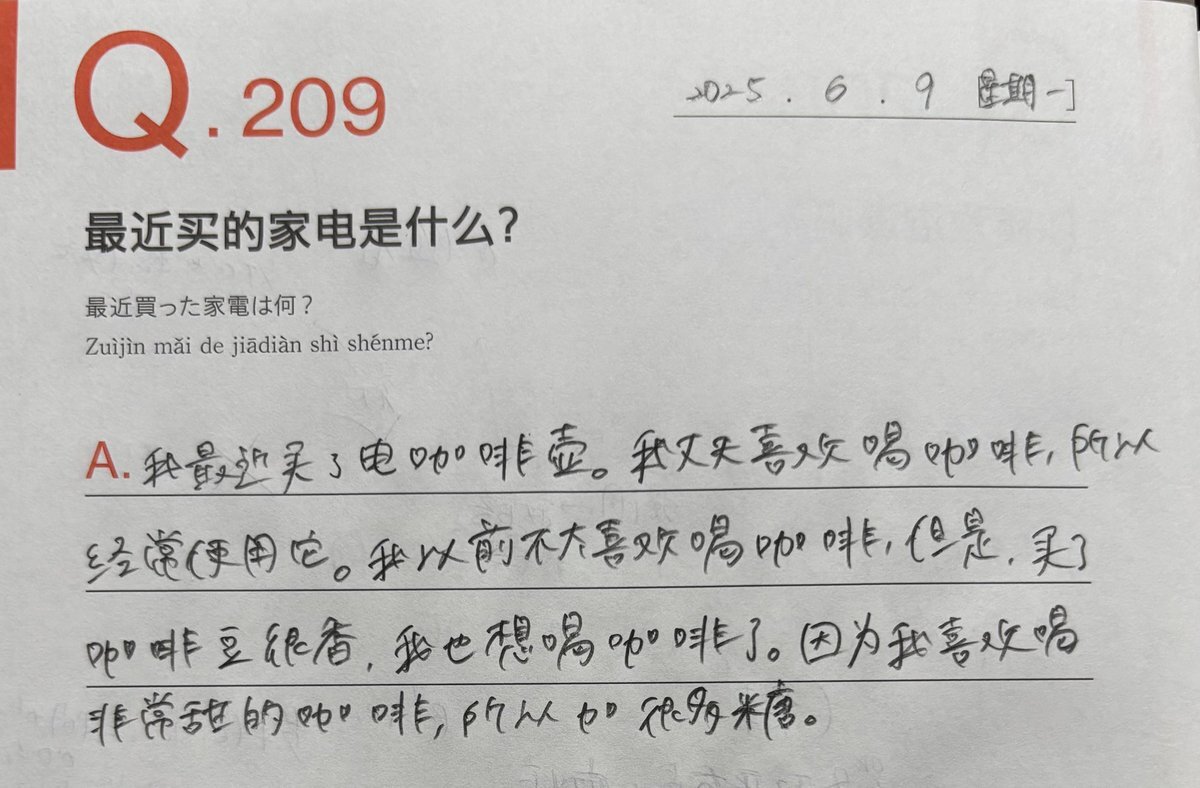 Q.209
2025.6.9 星期一
最近买的家电是什么?
最近買った家電は何?
Zuìjìn mǎi de jiādiàn shì shénme?
A. 我最近买了电咖啡壶。我丈夫喜欢喝咖啡,所以
经常使用它。我以前不大喜欢喝咖啡,但是,买了
咖啡豆很香,我也想喝咖啡了。因为我喜欢喝
非常甜的咖啡,所以加很多糖。